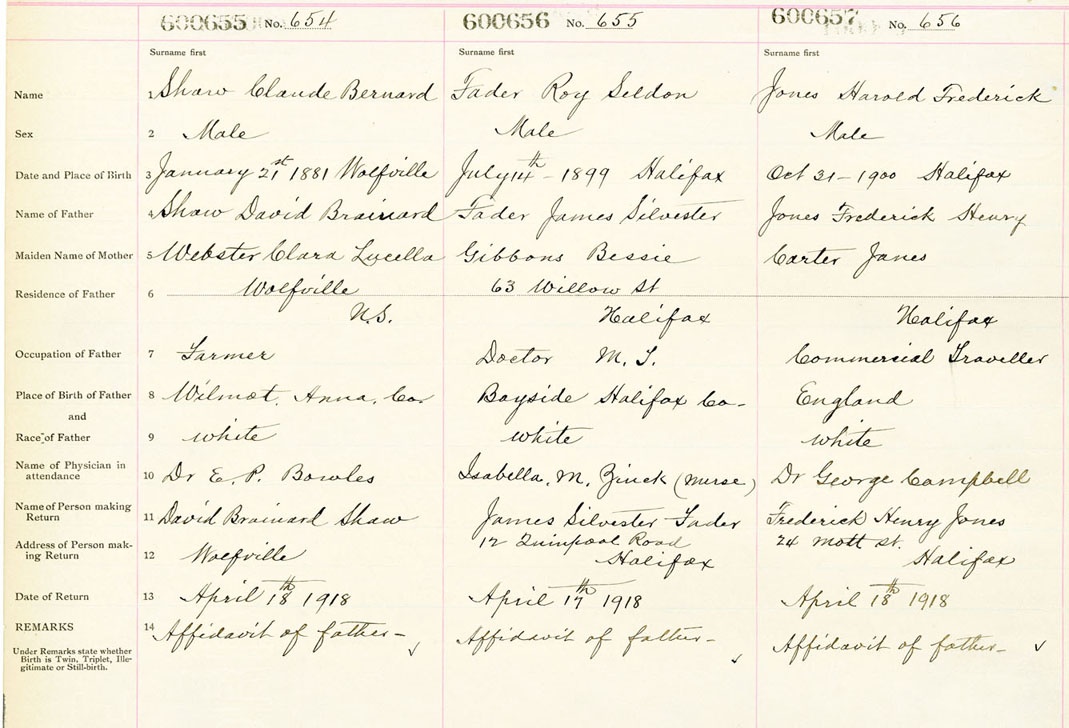 600655 No. 654
600656 No. 655
600657 No. 656
Surname first Surname first Surname first
Name 1 Shaw Claude Bernard Fader Roy Seldon Jones Harold Frederick
Sex 2 Male Male Male
Date and Place of Birth 3 January 21st 1881 Wolfville July 14th - 1899 Halifax Oct 31 - 1900 Halifax
Name of Father 4 Shaw David Brainard Fader James Silvester Jones Frederick Henry
Maiden Name of Mother 5 Webster Clara Lucella Gibbons Bessie Carter Janes
Residence of Father 6 Wolfville 63 Willow St
N.S. Halifax Halifax
Occupation of Father 7 Farmer Doctor M. Commercial Traveller
Place of Birth of Father 8 Wilmot, Anna, Co. Bayside Halifax Co- England
and
Race of Father 9 white white white
Name of Physician in
attendance 10 Dr E. P. Bowles Isabella, M. Zinck (nurse) Dr George Campbell
Name of Person making
Return 11 David Brainard Shaw James Silvester Fader Frederick Henry Jones
Address of Person mak-
ing Return 12 Wolfville 12 Quinpool Road 24 Mott st.
Halifax Halifax
Date of Return 13 April 18th 1918 April 17th 1918 April 18th 1918
REMARKS 14 Affidavit of father- Affidavit of father- Affidavit of father-
Under Remarks state whether
Birth is Twin, Triplet, Ille-
gitimate or Still-birth.